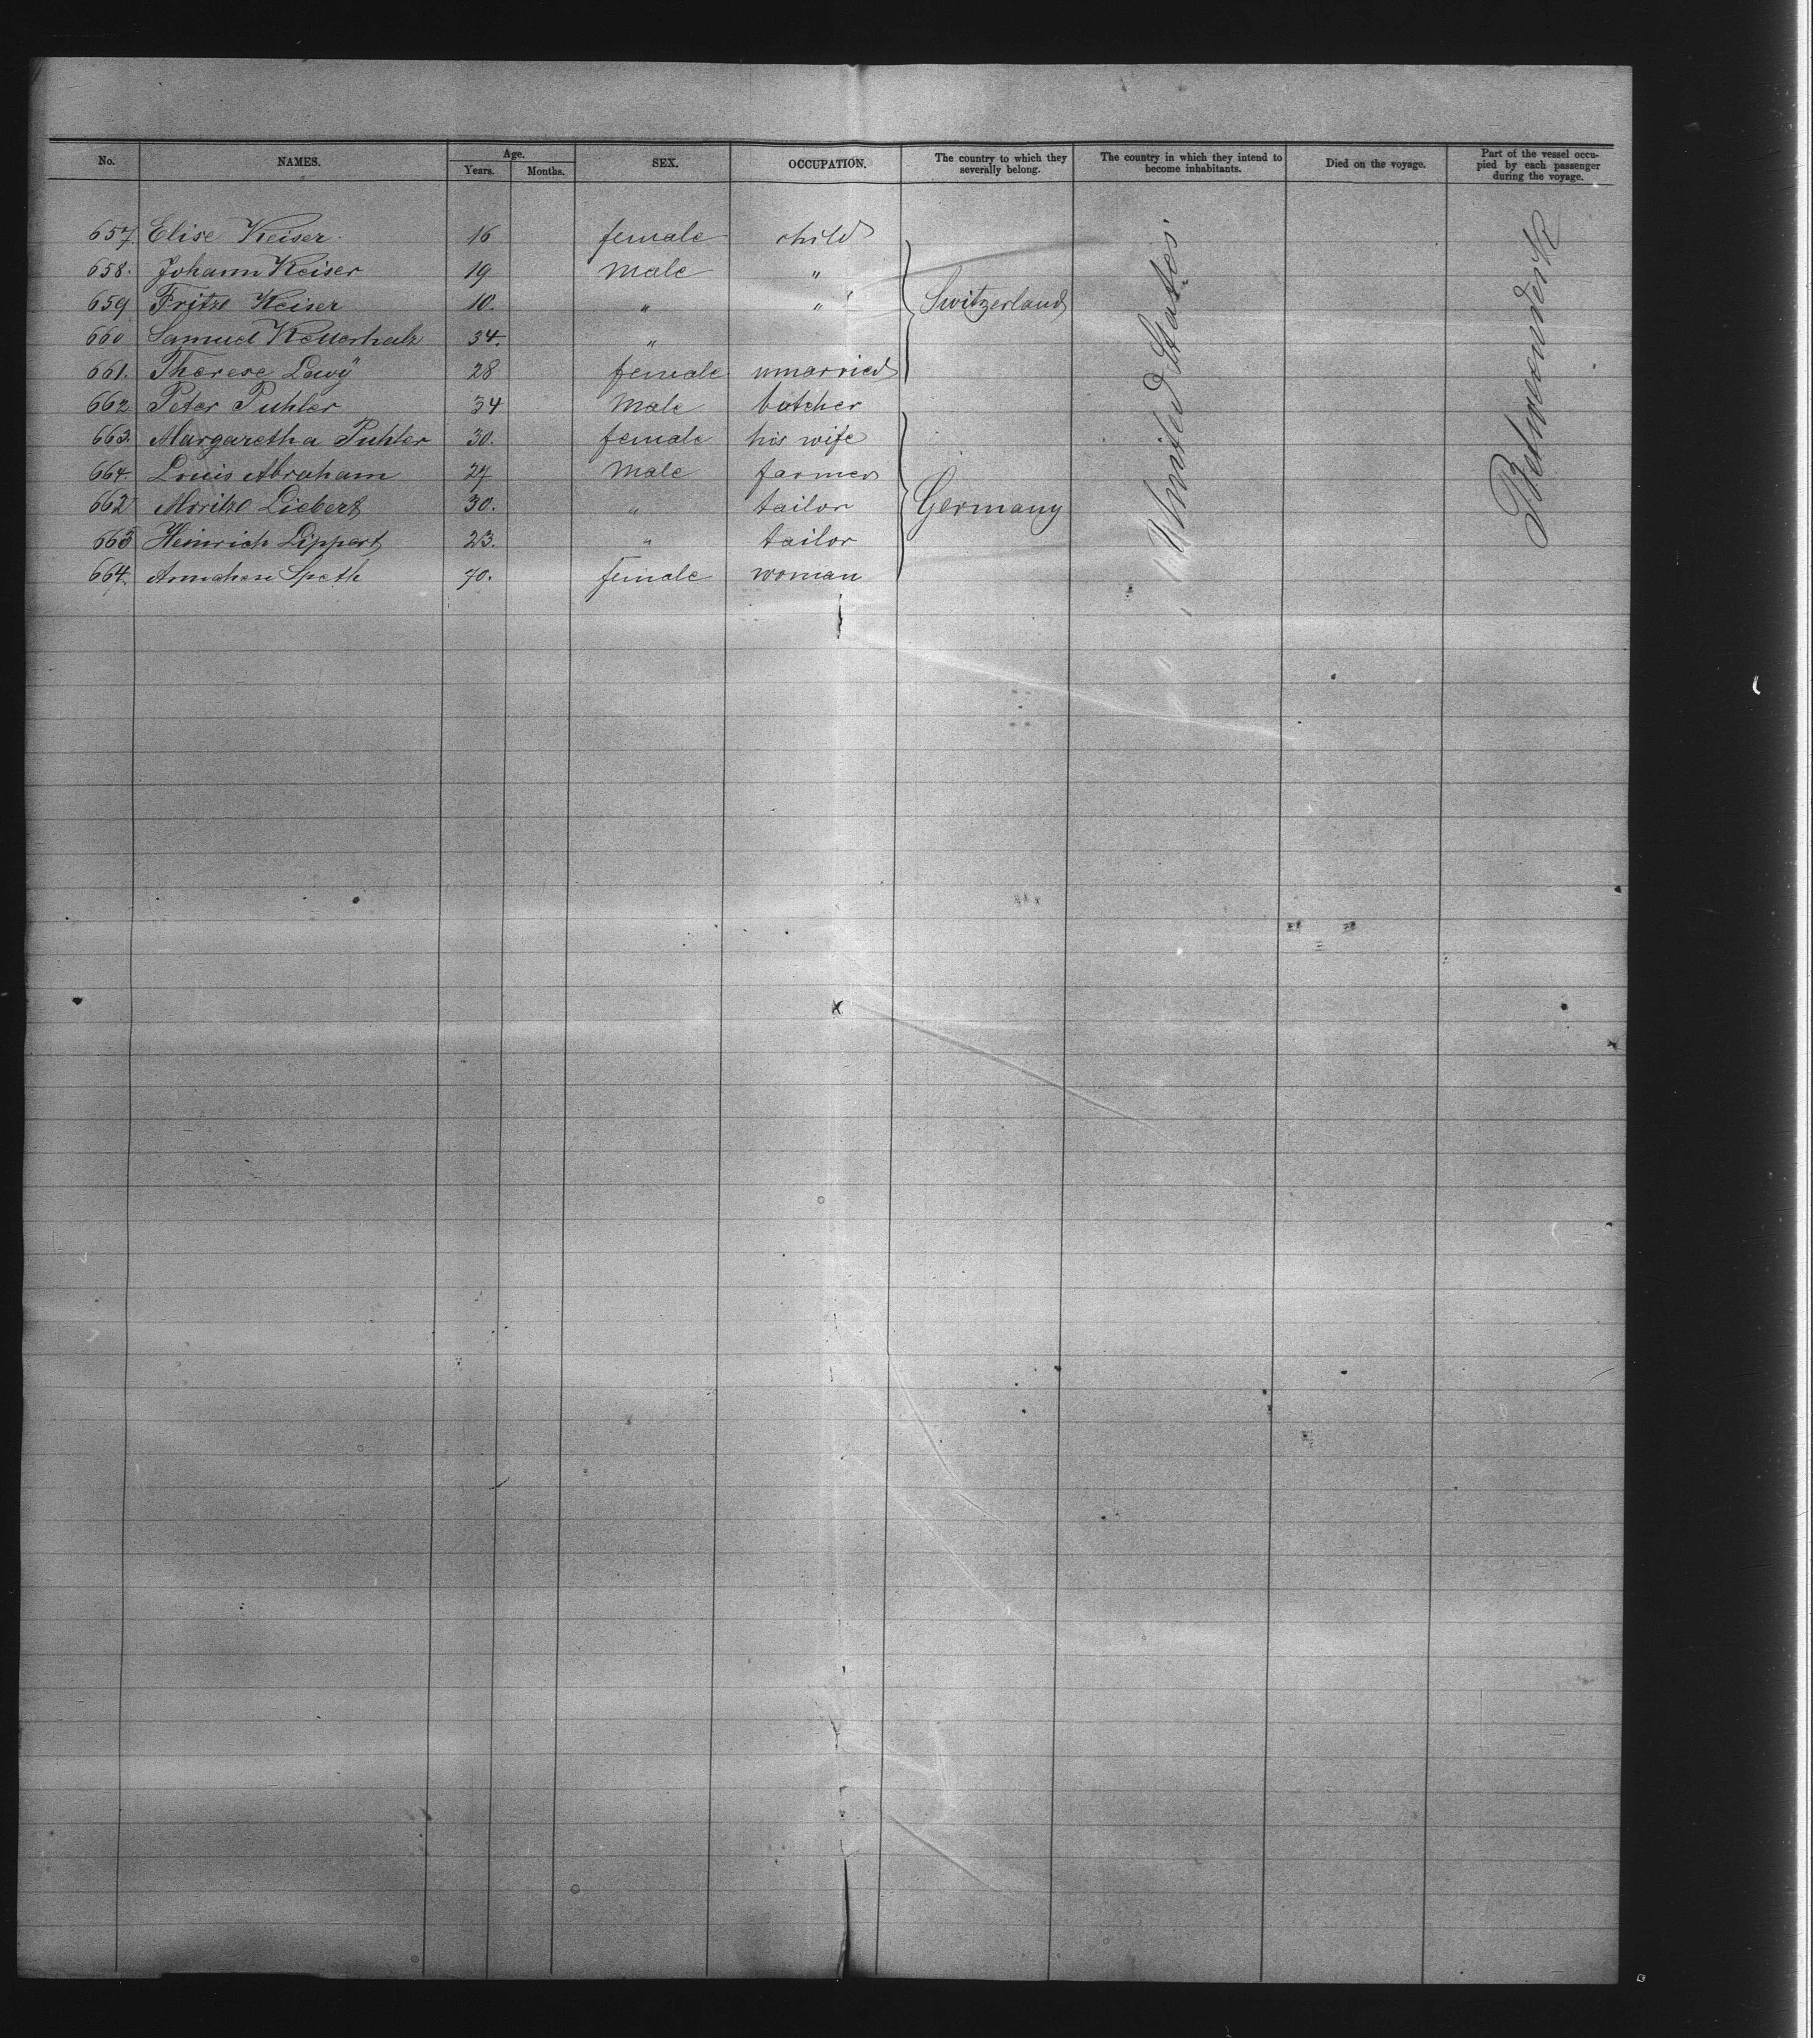 No. NAMES. Age. Years. Months. SEX. OCCUPATION. The country to which they severally belong. The country in which they intend to become inhabitants. Died on the voyage. Part of the vessel occupied by each passenger during the voyage.
657 Elise Keiser 16 female child
658. Johann Keiser 19 male "
659 Fritze Keiser 10. " " Switzerland
660 Samuel 34. "
661. Therese Lewÿ 28 female unmarried
662 Peter Puhler 34 male butcher
663. Margaretha Puhler 30. female his wife
664. Louis Abraham 27 male farmer
662 Moritze Liebert 30. " tailor Germany
663 Heinrich Lippert 23. " tailor
664. Speth 70. female woman
United States
Betweendeck